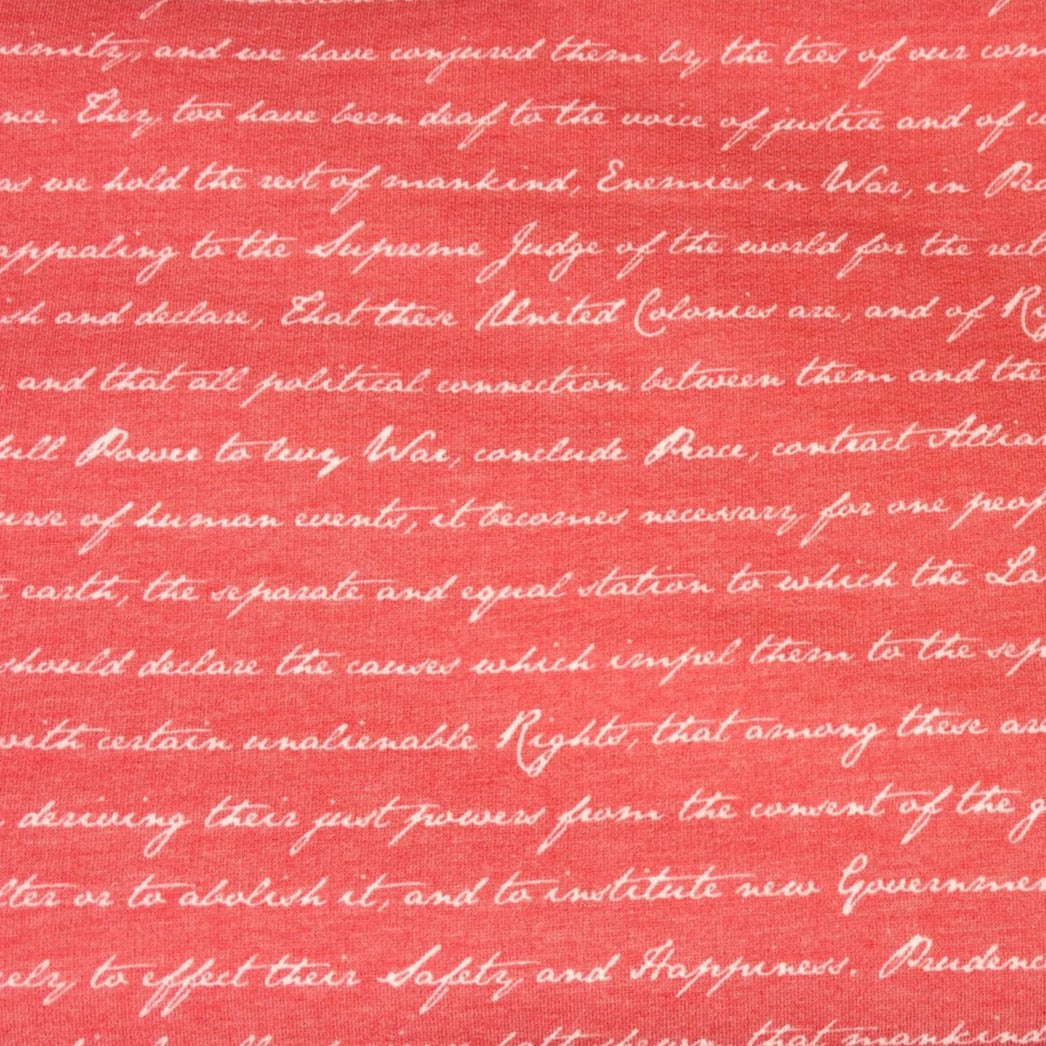 nimity, and we have conjured them by the ties of our com
nce. They too have been deaf to the voice of justice and of co
as we hold the rest of mankind, Enemies in War, in Pea
appealing to the Supreme Judge of the world for the rect
ish and declare, That these United Colonies are, and of Ri
and that all political connection between them and the
full Power to levy War, conclude Peace, contract Allian
urse of human events, it becomes necessary for one peop
earth, the separate and equal station to which the La
should declare the causes which impel them to the sep
with certain unalienable Rights, that among these are
deriving their just powers from the consent of the g
lter or to abolish it, and to institute new Governmen
ely to effect their Safety and Happiness. Prudenc
that mankind